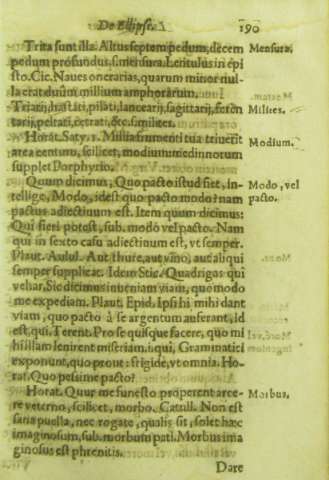 De Ellipse. 190
Trita sunt illa. Altus septem pedum, decem Mensura.
pedum profundus, s. mensura. Lentulus in epi
sto. Cic. Naues onerarias, quarum minor nul-
la erat duûm millium amphorarum.
Triarij, hastati, pilati, lancearij, sagittarij, feren Milites.
tarij, peltati, cetrati, &c. s. milites.
Horat. Saty. 1. Millia frumenti tua triuerit Modium.
area centum, scilicet, modium medimnorum
supplet Porphyrio.
Quum dicimus, Quo pacto istud fiet, in- Modo, vel
tellige, Modo, idest quo pacto modo? nam pacto.
pactus adiectinum est. Item quum dicimus:
Qui fieri potest, sub. modo vel pacto. Nam
qui in sexto casu adiectinum est, vt semper.
Plaut. Aulul. Aut thure, aut vino, aut aliqui
semper supplicat. Idem Stic. Quadrigas qui
vehar. Sic dicimus inueniam viam, quo modo
me expediam. Plaut. Epid. Ipsi hi mihi dant
viam, quo pacto à se argentum auferant, id
est, qui. Terent. Pro se quisque facere, quo mi
hi illam lenirent miseriam. i. qui, Grammatici
exponunt, quo pro ut: frigide, vt omnia. Ho-
rat. Quo pessime pacto?
Horat. Quur me funesto properent arce- Morbus.
re veterno, scilicet, morbo. Catull. Non est
sana puella, nec rogate, qualis sit, solet hæc
imaginosum, sub. morbum pati. Morbus ima
ginosus est phrenitis.
Dare